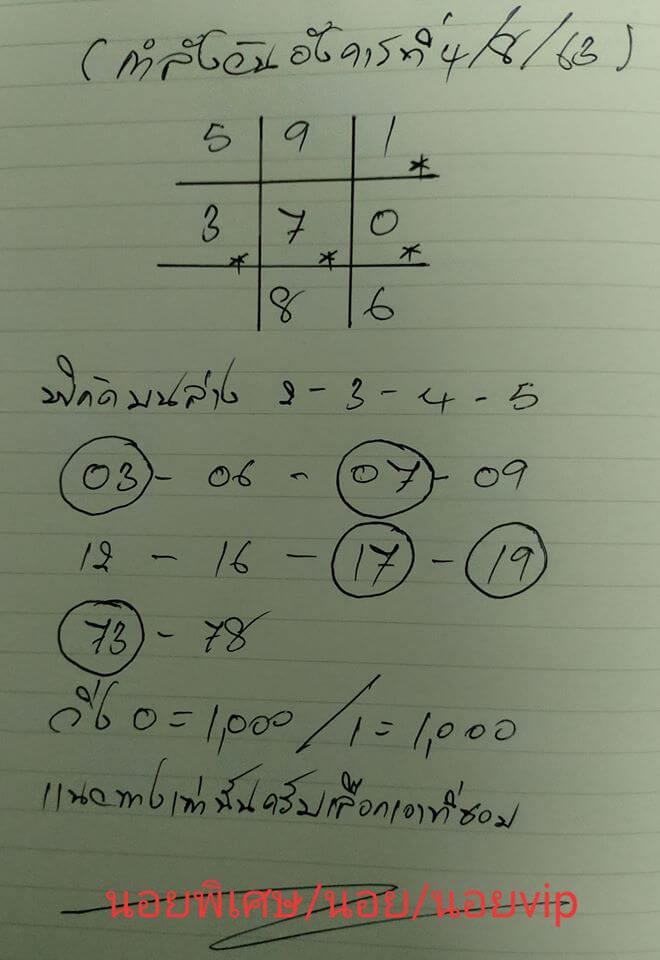 (กำลังวันอังคารที่ 4/8/63)
5 9 1*
3* 7* 0*
8 6
พิกัดบนล่าง 2 - 3 - 4 - 5
03 - 06 - 07 - 09
12 - 16 - 17 - 19
73 - 78
วิ่ง 0 = 1,000 / 1 = 1,000
แนวทางเท่านั้นครับเลือกเอาที่ชอบ
นอยพิเศษ/นอย/นอยvip